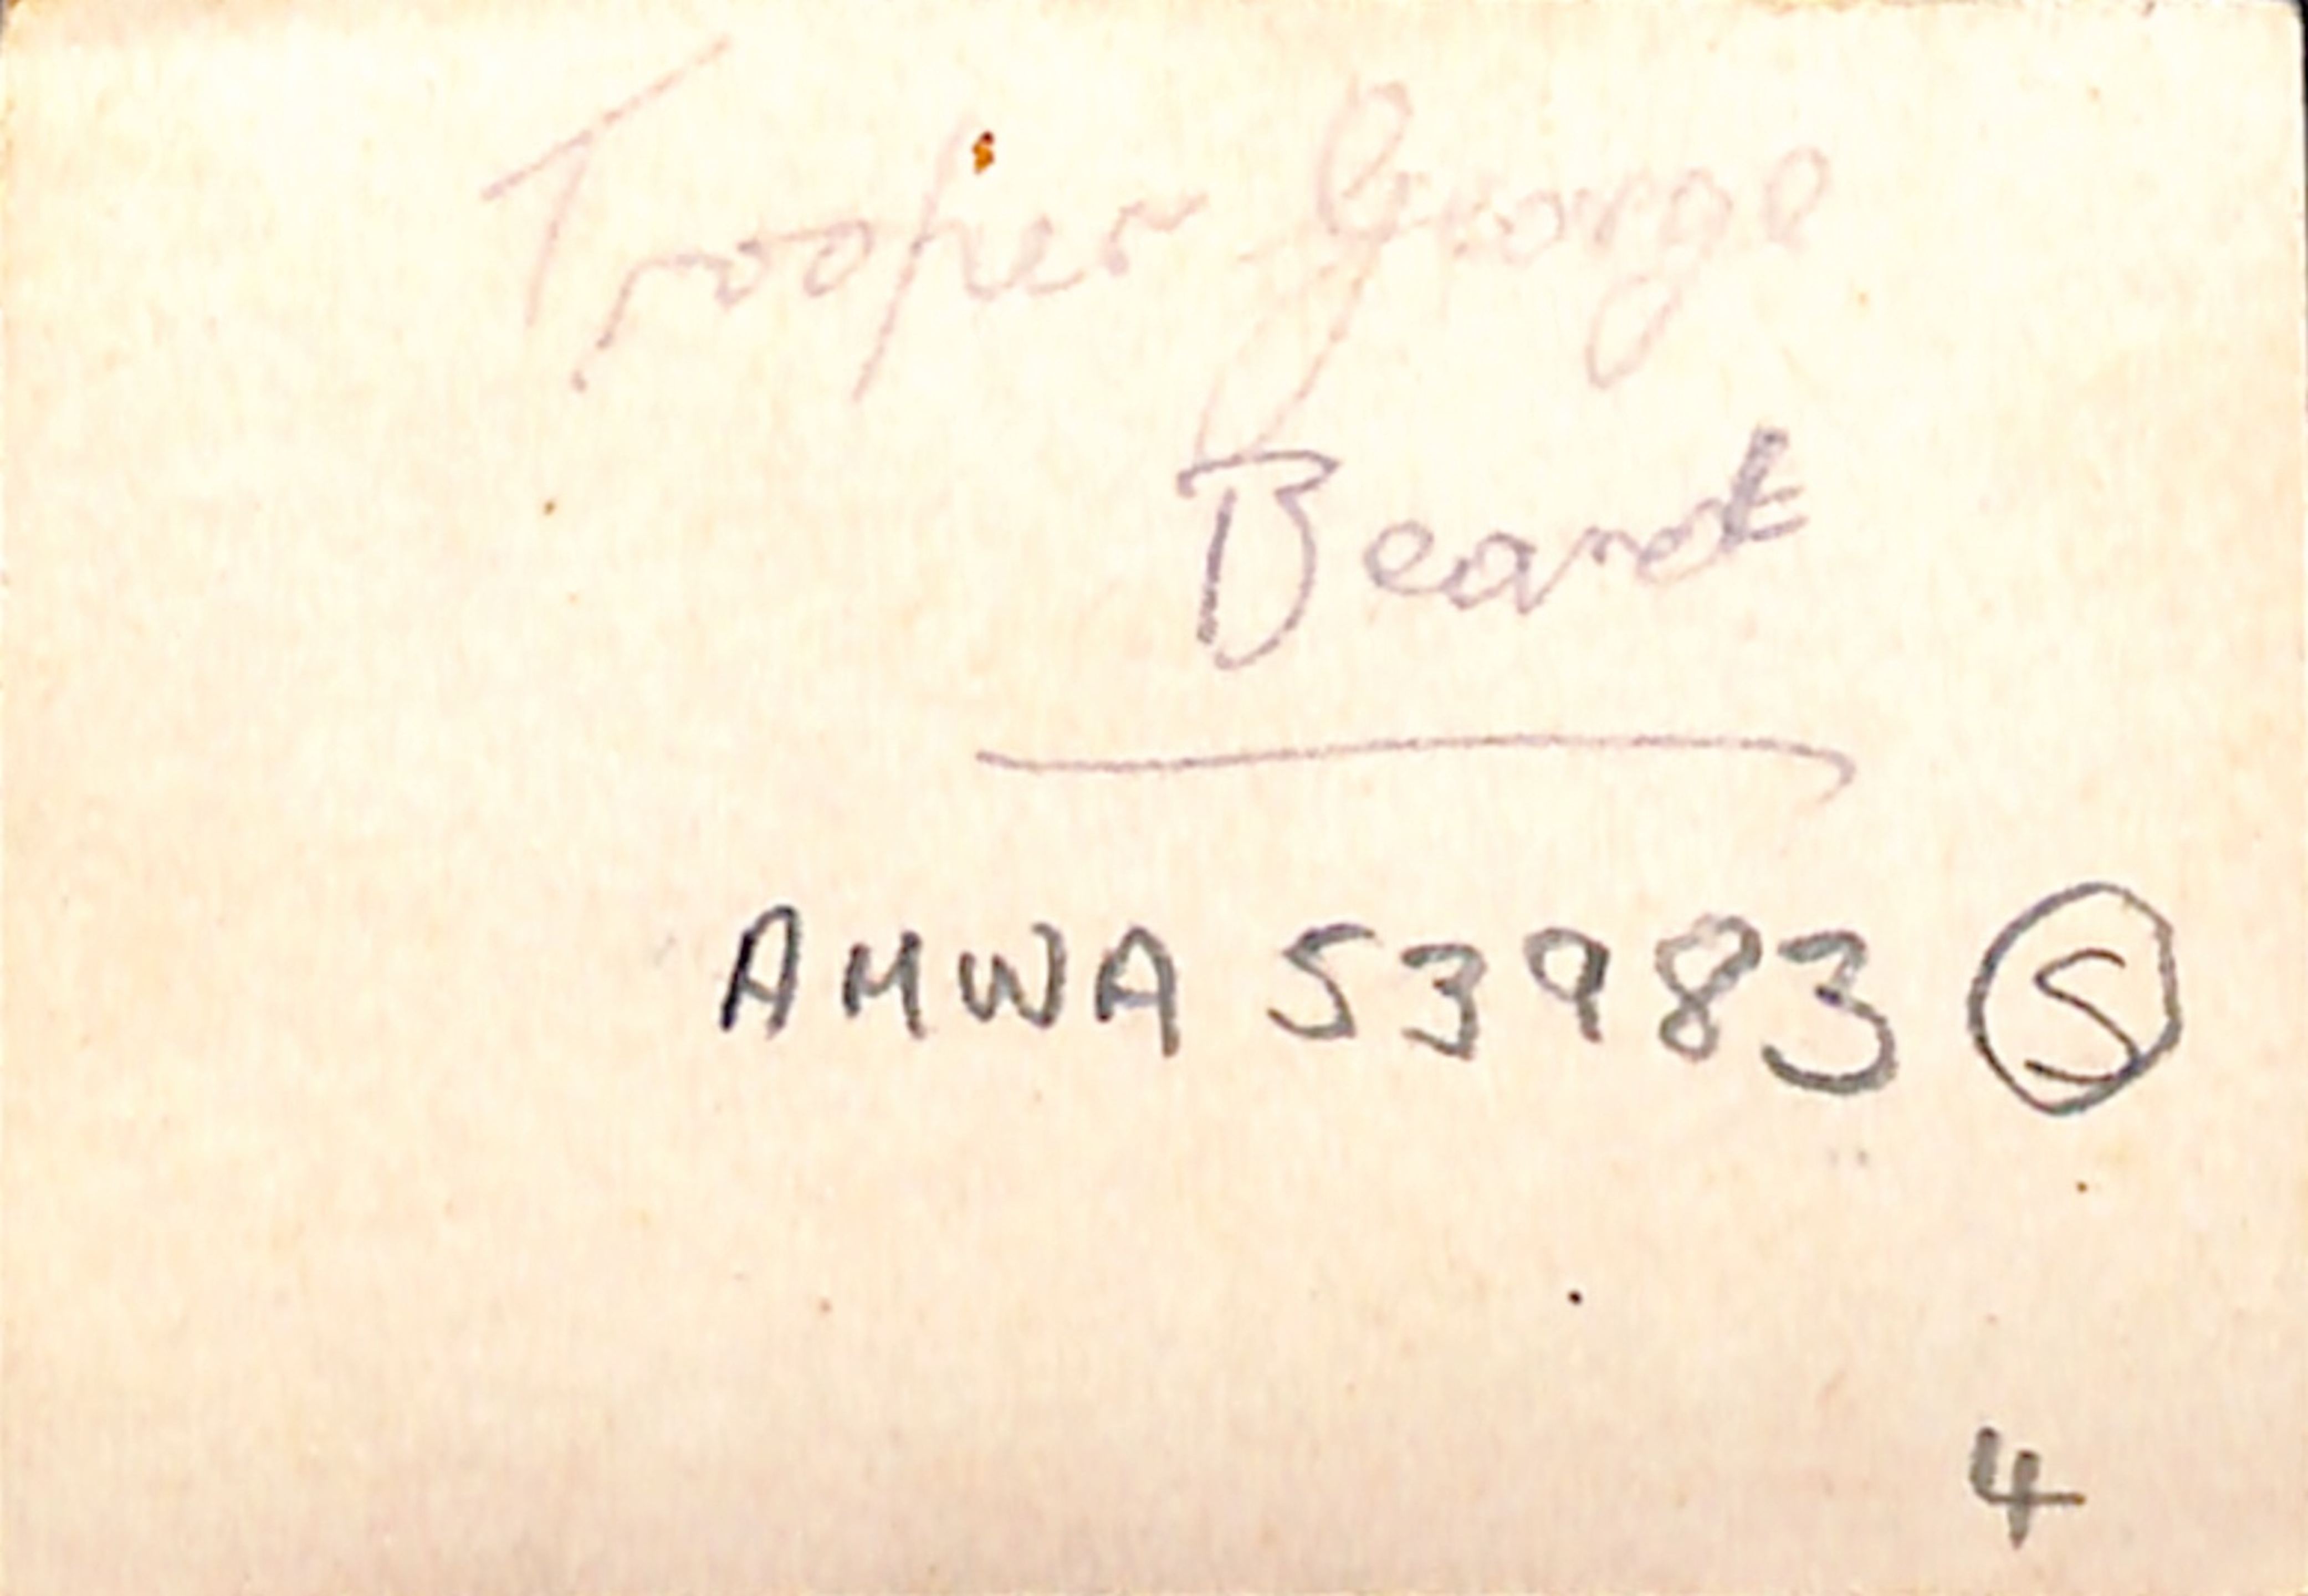 Trooper George
Beard
AMWA 53983 S
4